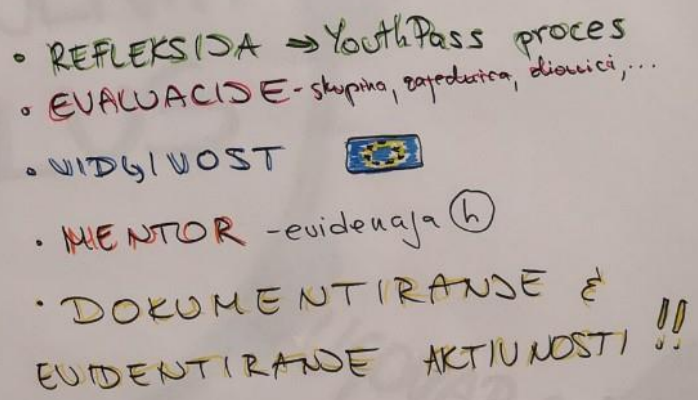 • REFLEKSIJA ⇒ YouthPass proces
• EVALUACIJE - skupina, zajednica, dionici,...
• VIDLJIVOST
• MENTOR - evidencija (h)
• DOKUMENTIRANJE &
EVIDENTIRANJE AKTIVNOSTI !!